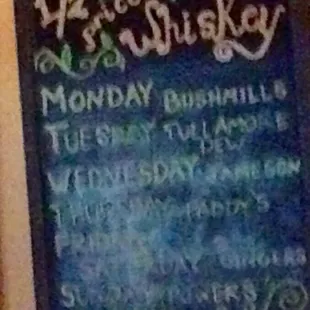 1/2
Whiskey
MONDAY BUSHMILLS
TUESDAY TULLAMORE
DEW
WEDNESDAY JAMESON
THURSDAY PADDY'S
FRIDAY
SATURDAY GINGERS
SUNDAY POWERS